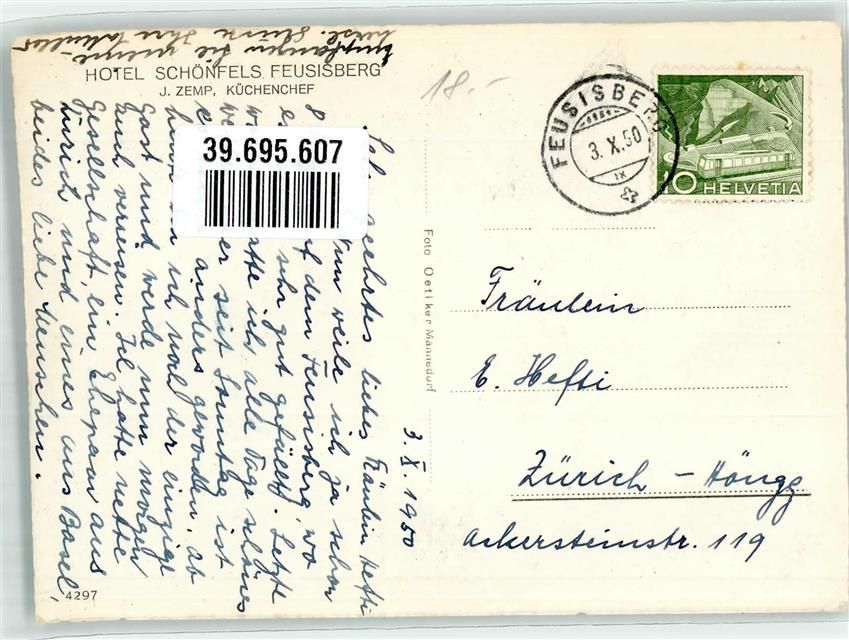 empfangen Sie meine
herzl. Grüsse Ihre
HOTEL SCHÖNFELS, FEUSISBERG
J. ZEMP, KÜCHENCHEF
18.-
FEUSISBERG
3. X. 50
IX
10 HELVETIA
39.695.607
3. X. 1950
geehrtes liebes Fräulein Hefti
Nun weile ich ja schon
8 auf dem Feusisberg, wo
es sehr gut gefällt. Letzte
hatte ich alle Tage schönes
seit Sonntag ist
anders geworden. Ab
ich wohl der einzige
Gast und werde nun morgen
auch verreisen. Ich hatte nette
Gesellschaft, ein Ehepaar aus
Zürich und eines aus Basel,
beides liebe Menschen.
4297
Foto Oetiker Männedorf
Fräulein
E. Hefti
Zürich - Höngg
Ackersteinstr. 119